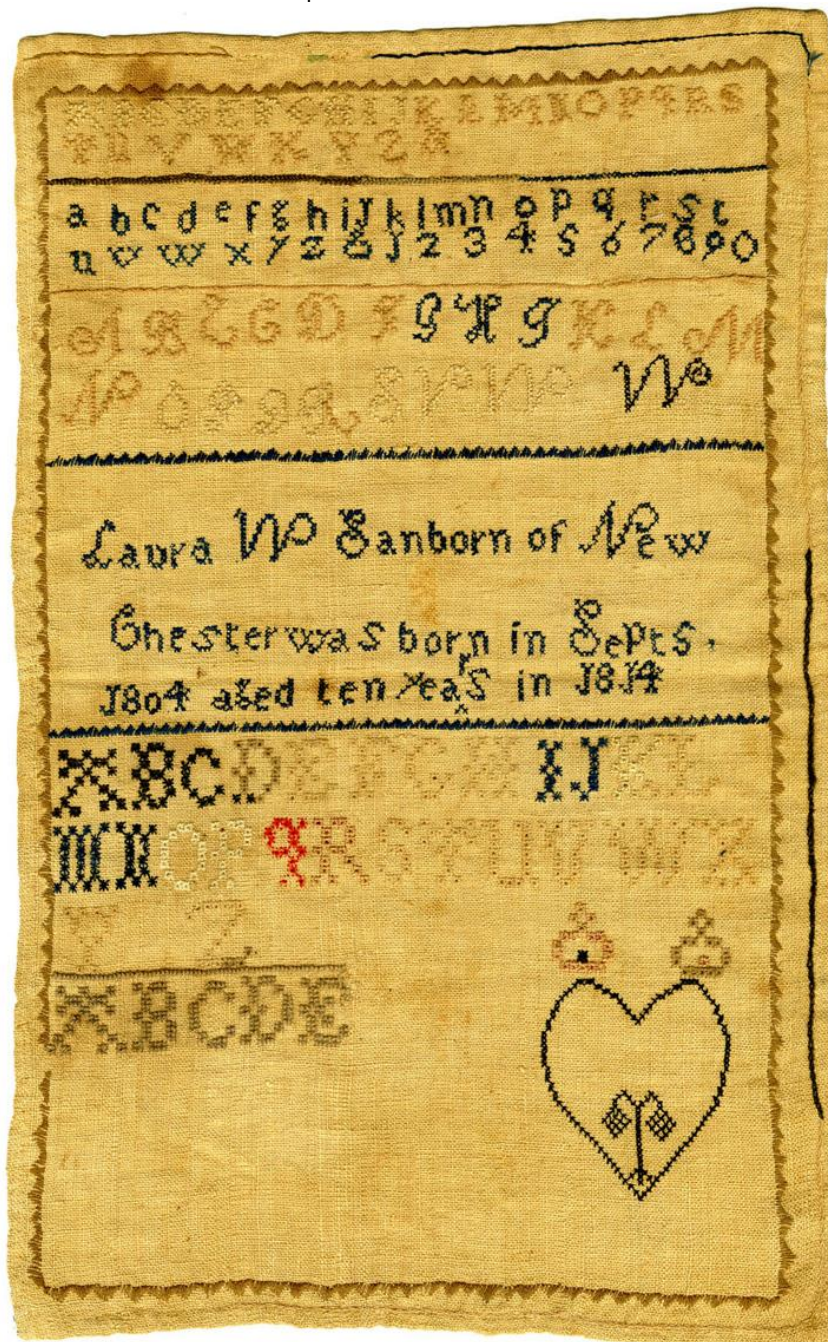 A B C D E F G H I J K L M N O P Q R S
T U V W X Y Z &
a b c d e f g h i j k l m n o p q r s t
u v w x y z & 1 2 3 4 5 6 7 8 9 0
A B C G D F G H I K L M
N O P Q R S T W W
Laura W Sanborn of New
Chester was born in Sept 5,
1804 aged ten years in 1814
A B C D E F G H I J K L
M N O P Q R S T U V W X
Y Z
A B C D E